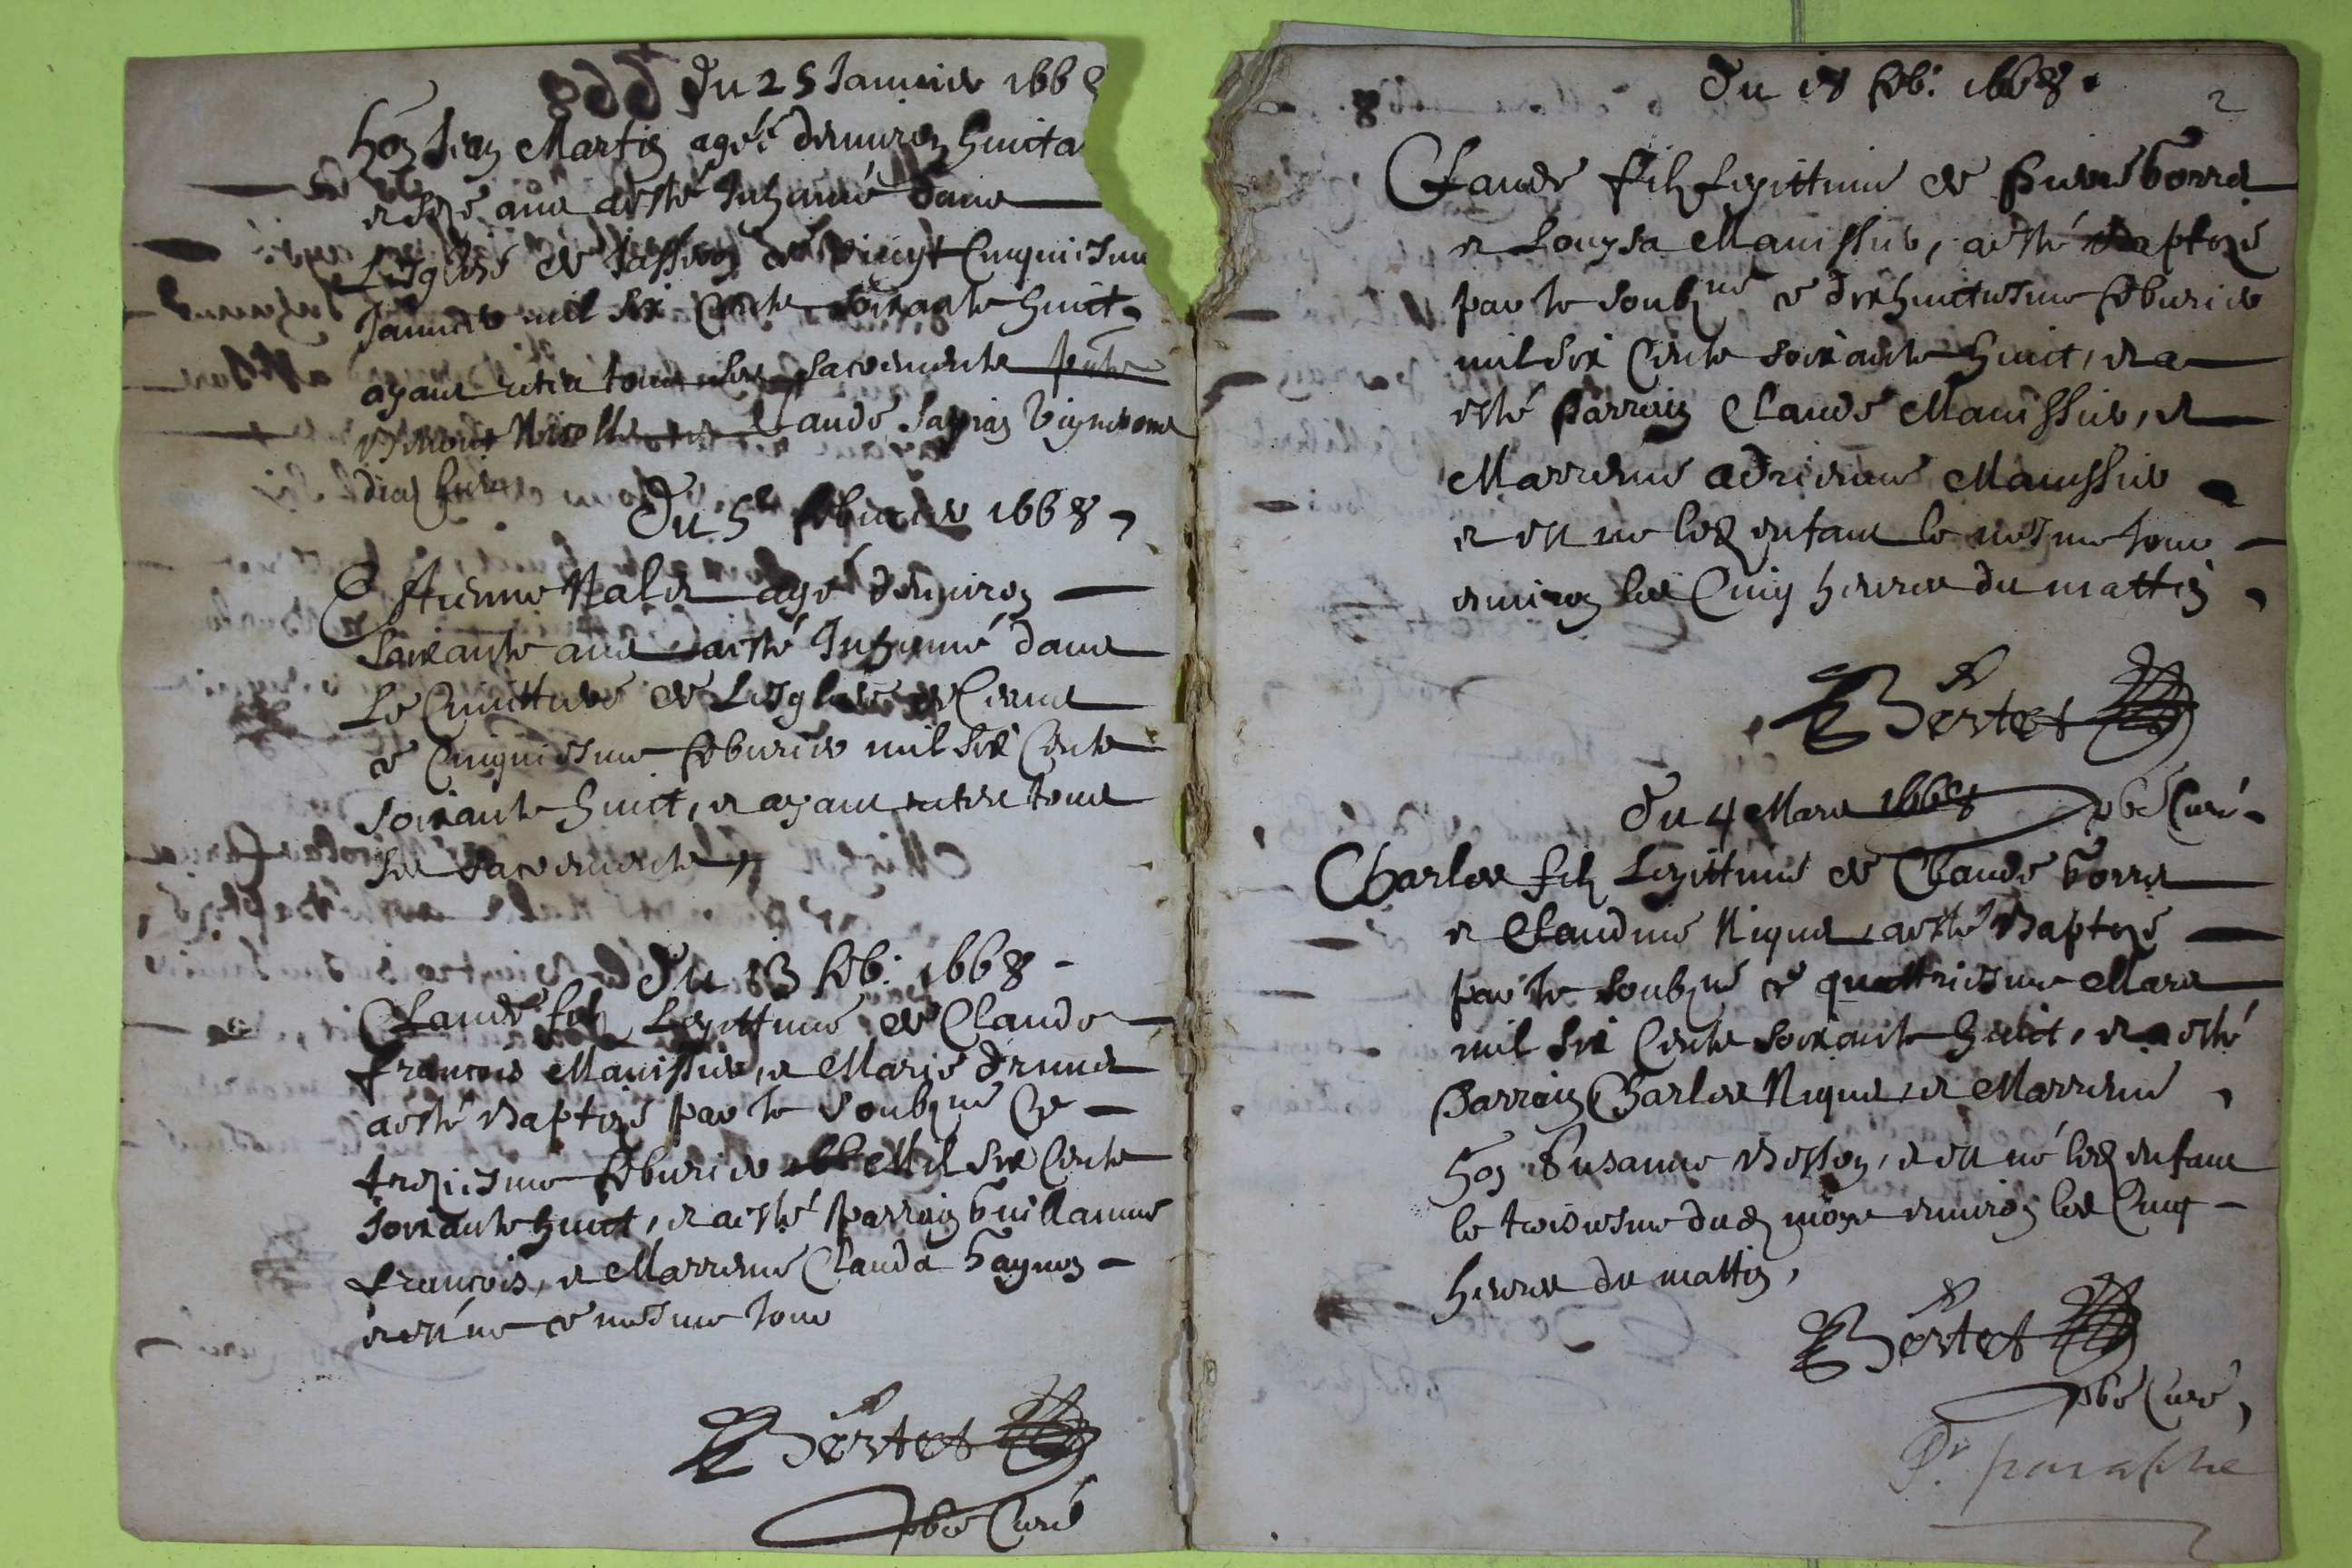 Du 25 Januier 1668
hon Jean Martin agéé denuiron huicta
et ans aesté Inhumé dans
Lesglise de ce vingt Cinquiesme
Januier mil six Cents soixante huict
ayant receu tous les sacrements
Claude vignerons
Du 5e feburier 1668
Estienne Nalet agé denuiron
soixante ans aesté Inhumé dans
Le Cimittiere de Lesglise de
ce Cinquiesme febvrier mil six Cents
soixante huict, et ayant receu tous
les sacrements
Du 13 feb: 1668
Claude filz Legittime de Claude
francois Manissier, et Marie Drunet
aesté Baptizé par le soubzné Ce
treziesme feburier Mil six Cents
soixante huict, et aesté parrain Guillaume
francois, et Marrene Clauda
et est né ce mesme Jour
Bertet
pbre Curé
2
Du 18 feb: 1668
Claude filz Legittime de Pierre Gorret
et Louysa Manissier, aesté Baptizé
par le soubzné ce dixhuictiesme feburier
mil six Cents soixante huict, et a
esté Parrain Claude Manissier, et
Marrene Adrienne Manissier
et est né led enfant le mesme Jour
enuiron les Cinq heures du mattin
Bertet
pbre Curé
Du 4 Mars 1668
Charles filz Legittime de Claude Gorret
et Claudine Niquet, aesté Baptizé
par le soubzné ce quattriesme Mars
mil six Cents soixante huict, et a esté
Parrain Charles Niquet, et Marrene
hon Susanne Besson, et est né led enfant
le troisiesme dud moys enuiron les Cinq
heures du mattin,
Bertet
pbre Curé,
Pr. paraphe